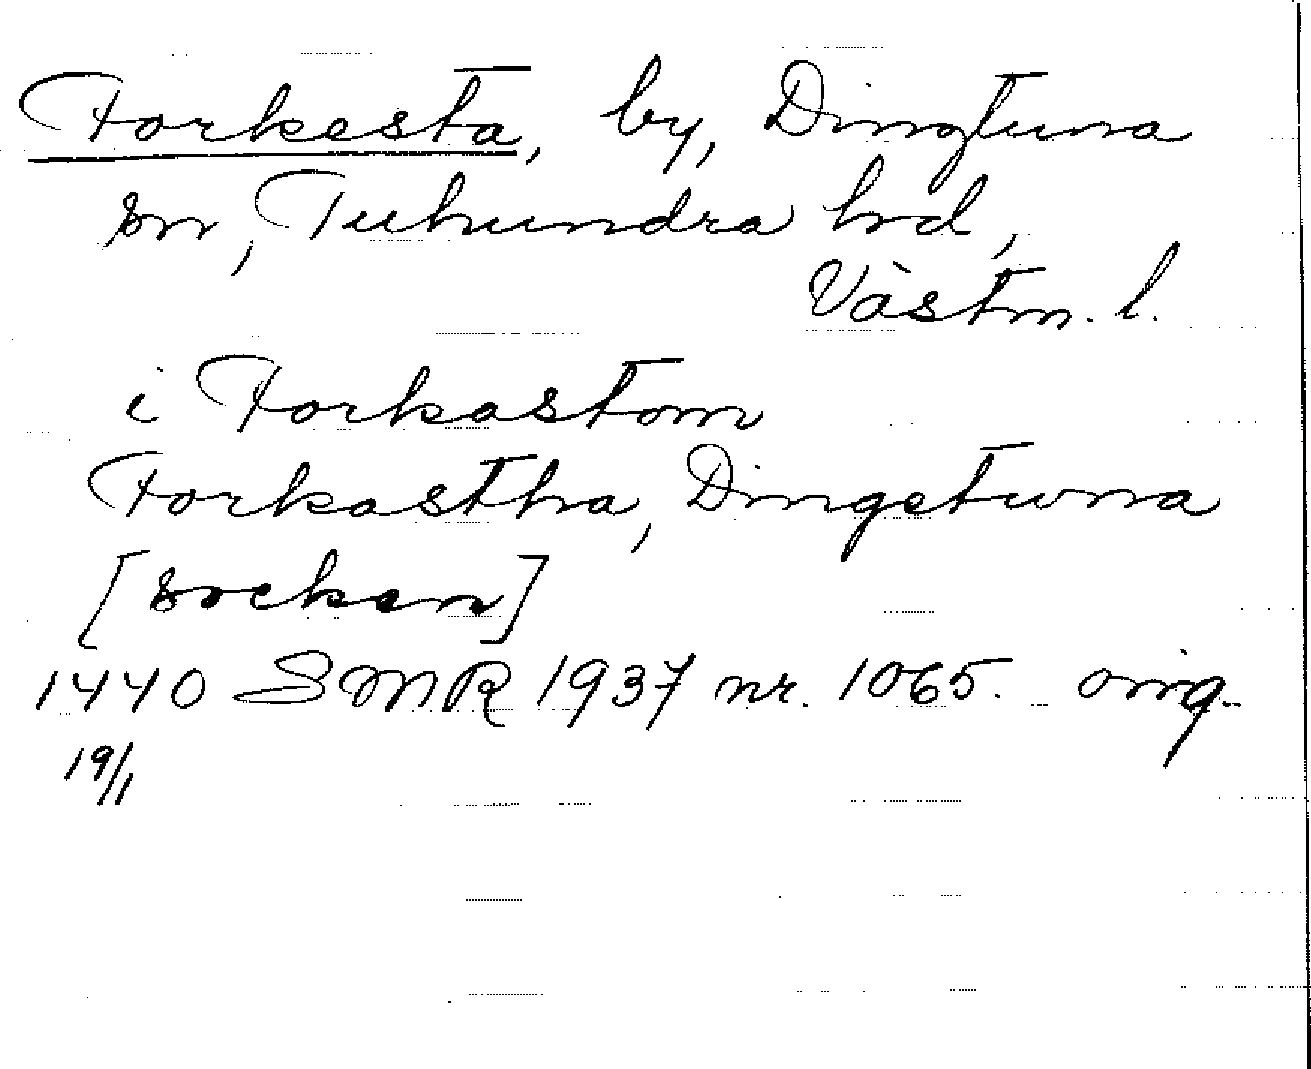 Forkesta, by, Dingtuna
sn, Tuhundra hd,
Västm. l.
i Forkastom
Forkastha, Dingetuna
[socken]
1440 SMR 1937 nr. 1065. orig.
19/1